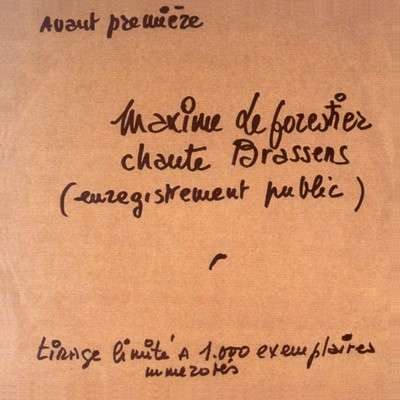 Avant première
Maxime de forestier
chante Brassens
(enregistrement public)
tirage limité A 1.000 exemplaires
numerotés